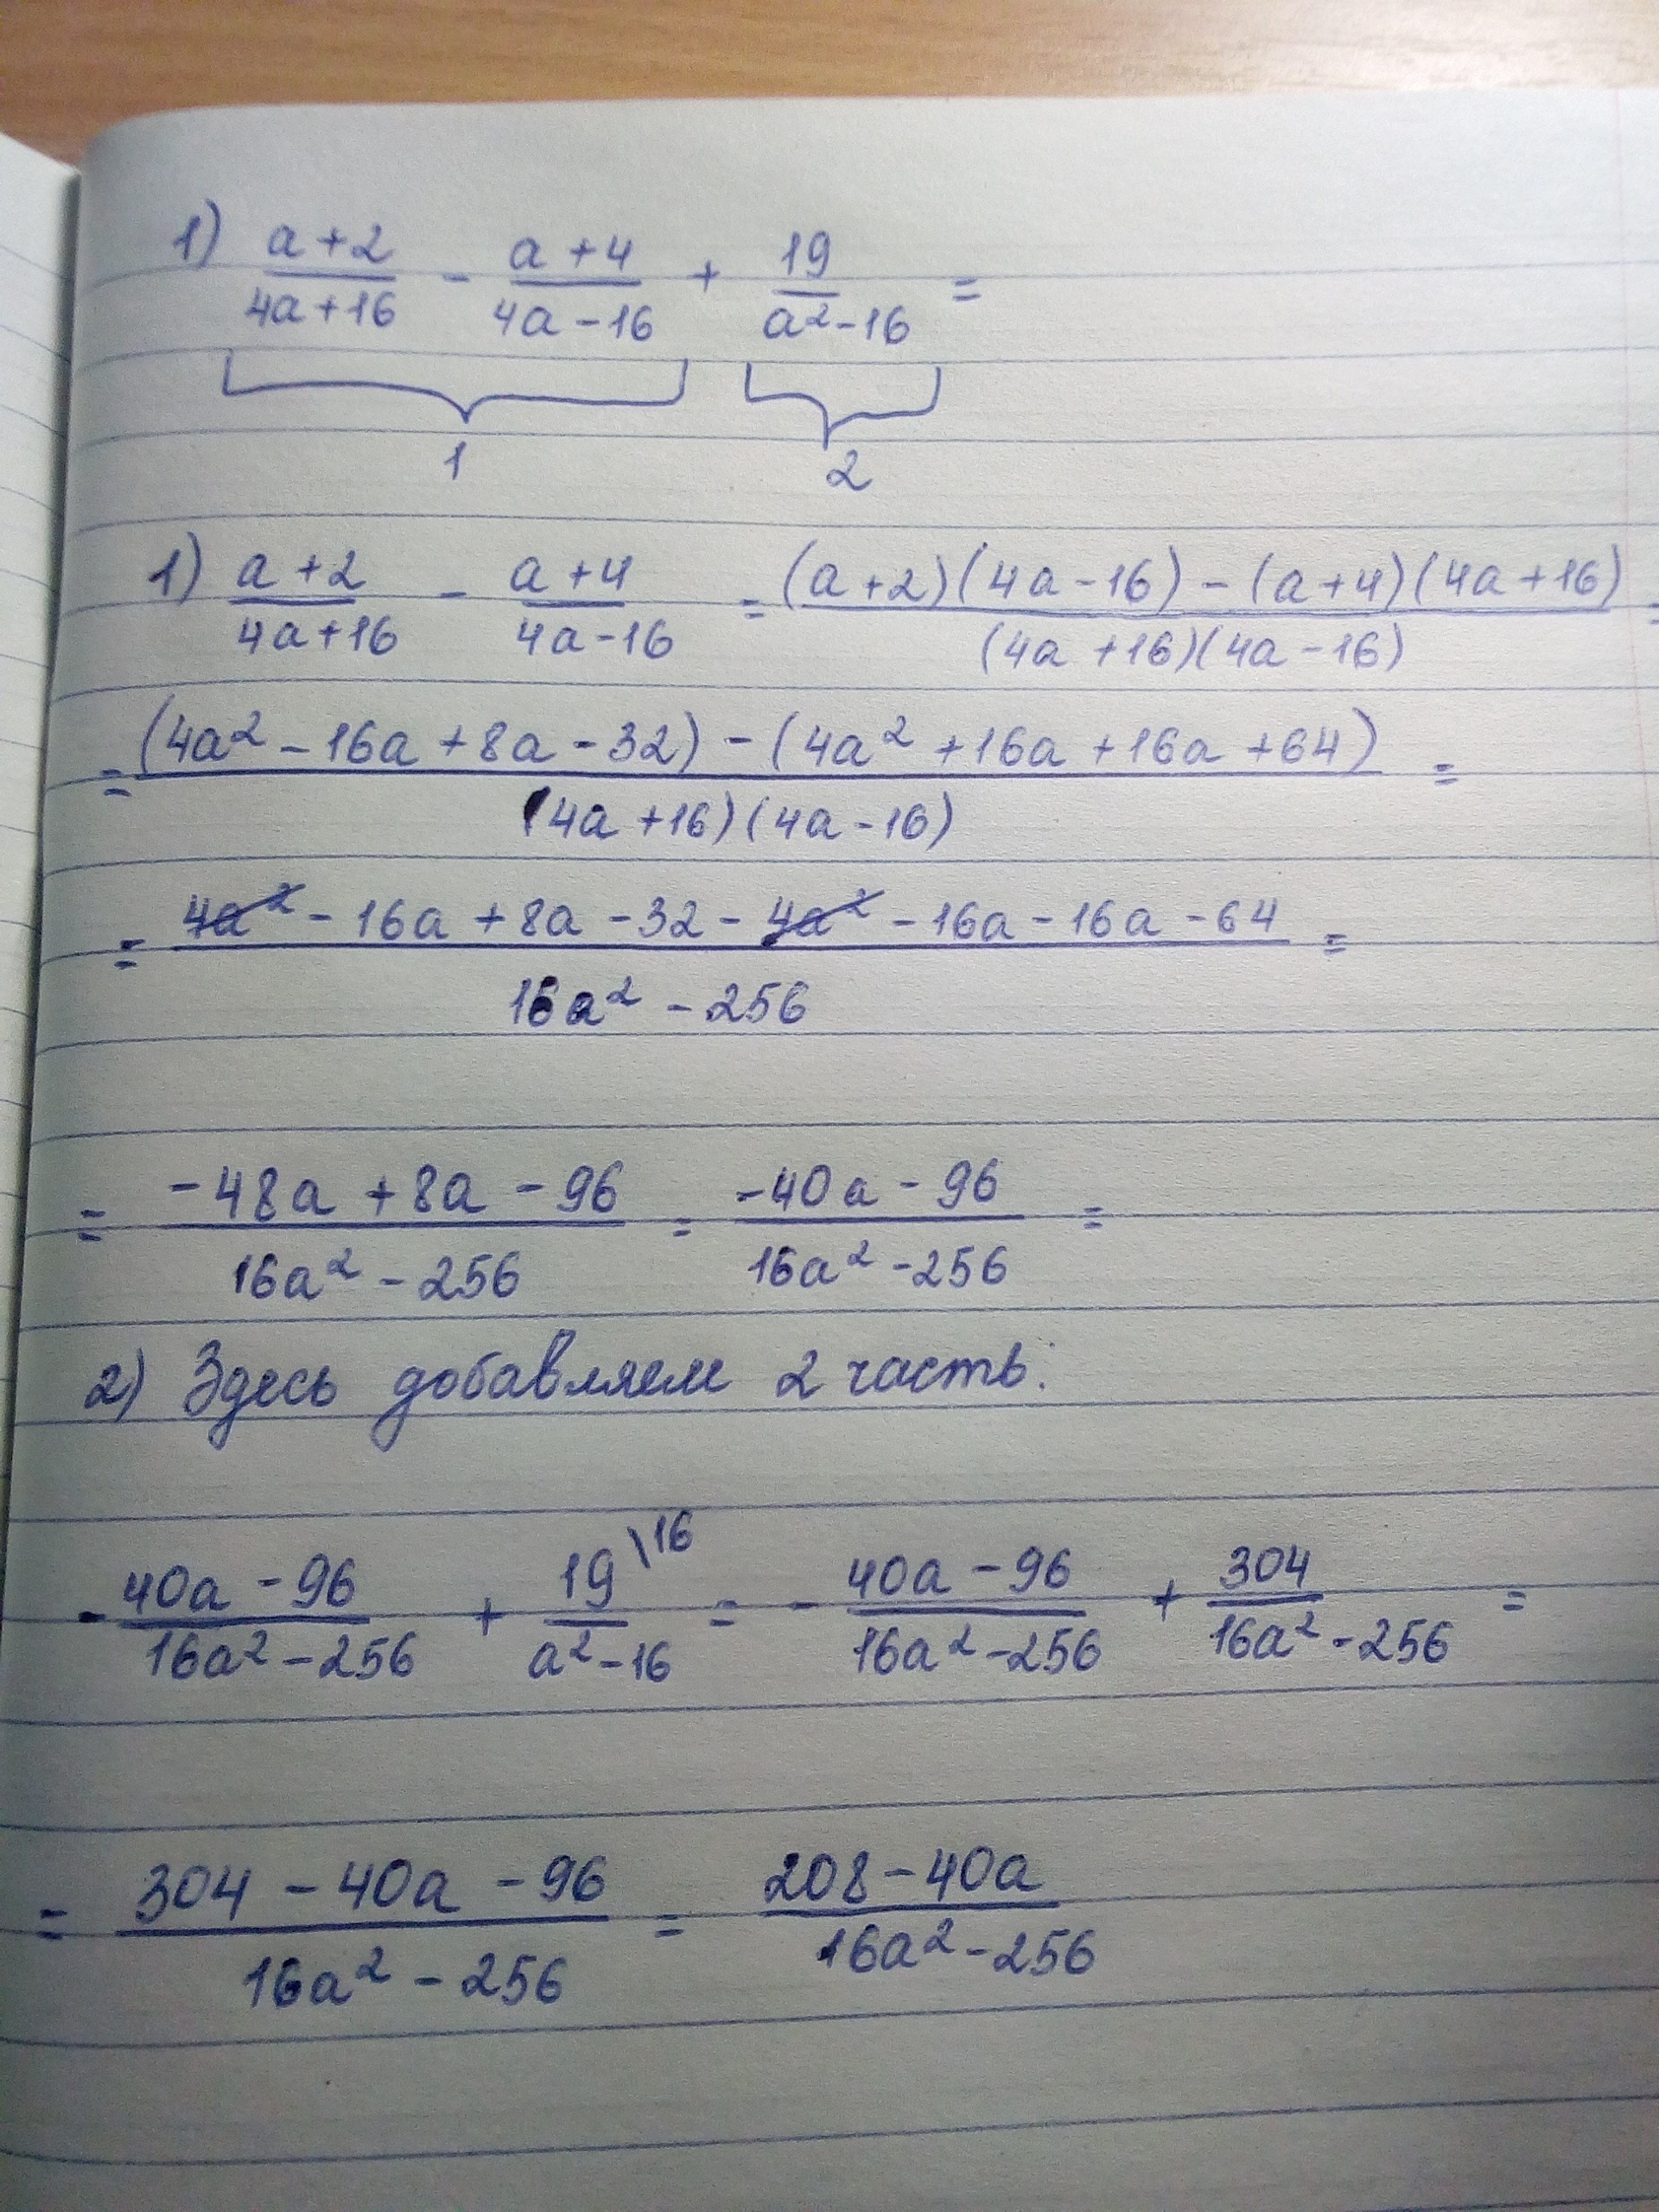 1) (a+2)/(4a+16) - (a+4)/(4a-16) + 19/(a²-16) =
1 2
1) (a+2)/(4a+16) - (a+4)/(4a-16) = ((a+2)(4a-16)-(a+4)(4a+16))/((4a+16)(4a-16)) =
= ((4a²-16a+8a-32)-(4a²+16a+16a+64))/((4a+16)(4a-16)) =
= (4a²-16a+8a-32-4a²-16a-16a-64)/(16a²-256) =
= (-48a+8a-96)/(16a²-256) = (-40a-96)/(16a²-256) =
2) Здесь добавляем 2 часть:
- (40a-96)/(16a²-256) + 19\16/(a²-16) = - (40a-96)/(16a²-256) + 304/(16a²-256) =
= (304-40a-96)/(16a²-256) = (208-40a)/(16a²-256)